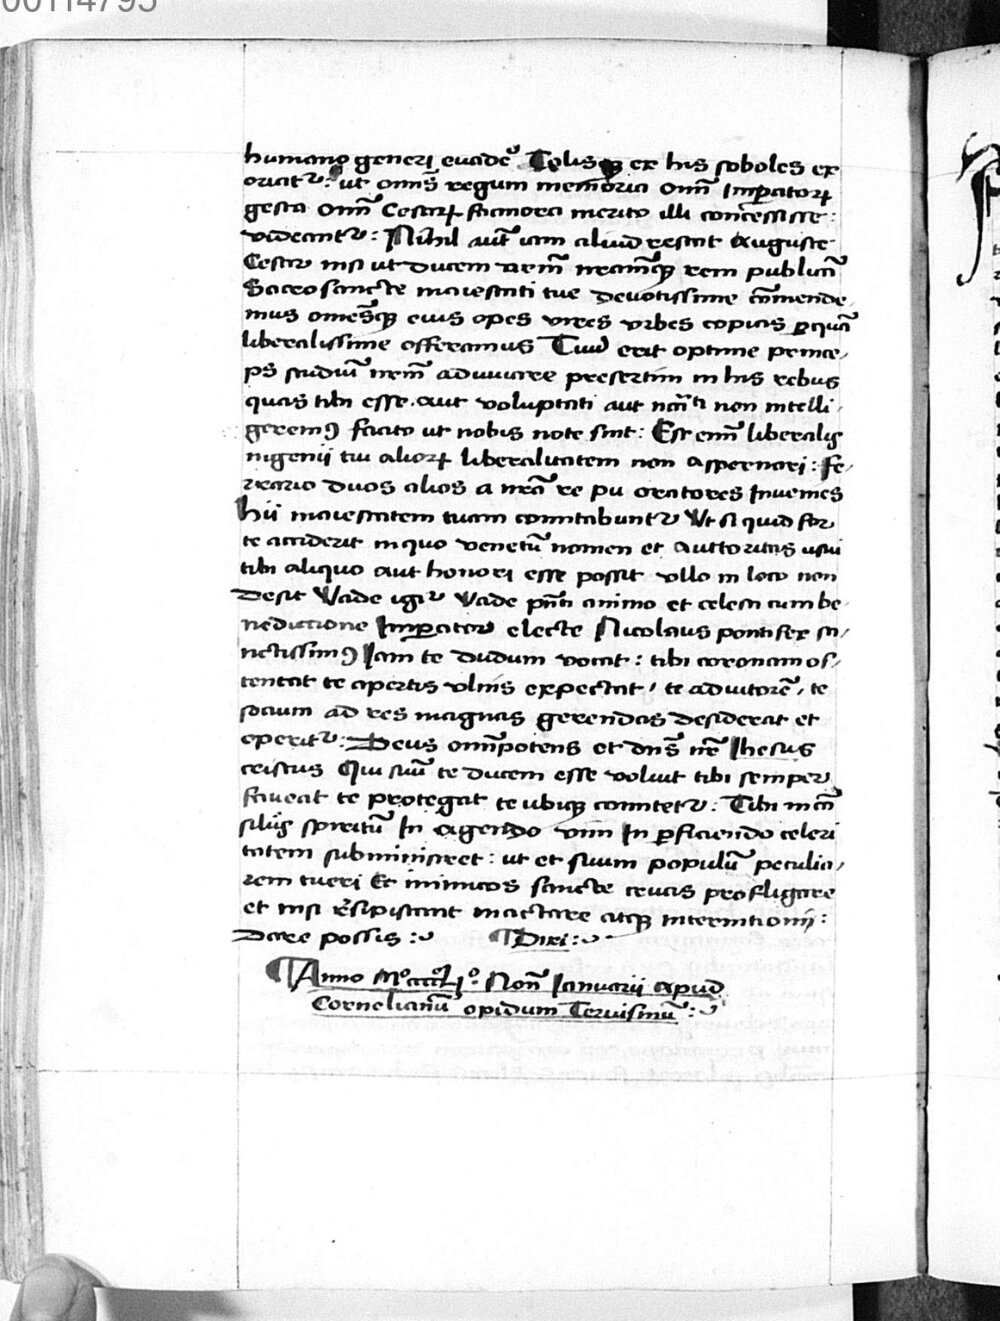 00114795
humano generi euadet᷒ Talisq; ex his soboles ex
oriat᷒: ut om̅s regum memoria om̅ Imp̲ator̨
gesta om̅ Cesar̨ facinora merito illi concessisse:
videant᷒: Nihil aut̅ iam aliud restat Auguste
Cesar nisi ut ducem n̅rm̅ n̅ramq; rem publica̅
Sacrosancte maiestati tue deuotissime co̅mende,
mus omesq; eius opes vires vrbes copias p̲qua̅
liberalissime offeramus Tuu̅ erit optime prince,
ps studiu̅ n̅rm̅ adiuuare presertim in his rebus
quas tibi esse aut voluptati aut non intelli,
gerem⁹ facito ut nobis note sint: Est eni̅ liberalis
ingenii tui alior̨ liberalitatem non aspernari: Fe,
rrario duos alios a n̅ra re pu oratores Inuenies
hii maiestatem tuam comitabunt᷒ Vt si quid for
te acciderit in quo venetu̅ nomen et auttoritas usui
tibi aliquo aut honori esse possit vllo in loco non
desit Vade igi᷒ Vade p̅nti animo et celesti cum be
nedictione Imp̲ator electe Nicolaus pontifex sa,
nctissim⁹ Iam te dudum vocat: tibi coronam os,
tentat te apertis vlnis expectat, te adiutore̅, te
socium ad res magnas gerendas desiderat et
operit᷒: Deus om̅ipotens et dn̅s n̅r Ihesus
cristus Qui suu̅ te ducem esse voluit tibi semper
faueat te protegat te ubiq; comitet᷒: Tibi in co̅
siliis spiritu̅ In agendo vim In p̲ficiendo celeri
tatem subministret: ut et suum populu̅ peculia,
rem tueri Et inimicos sancte crucis profligare
et nisi resipiscant mactare atq; internitioni:
dare possis :~ ¶Dixi:~
¶Anno Mº ccccLjº. Non̅ Ianuarii apud
Cornelianu̅ opidum Teruisinu̅:~